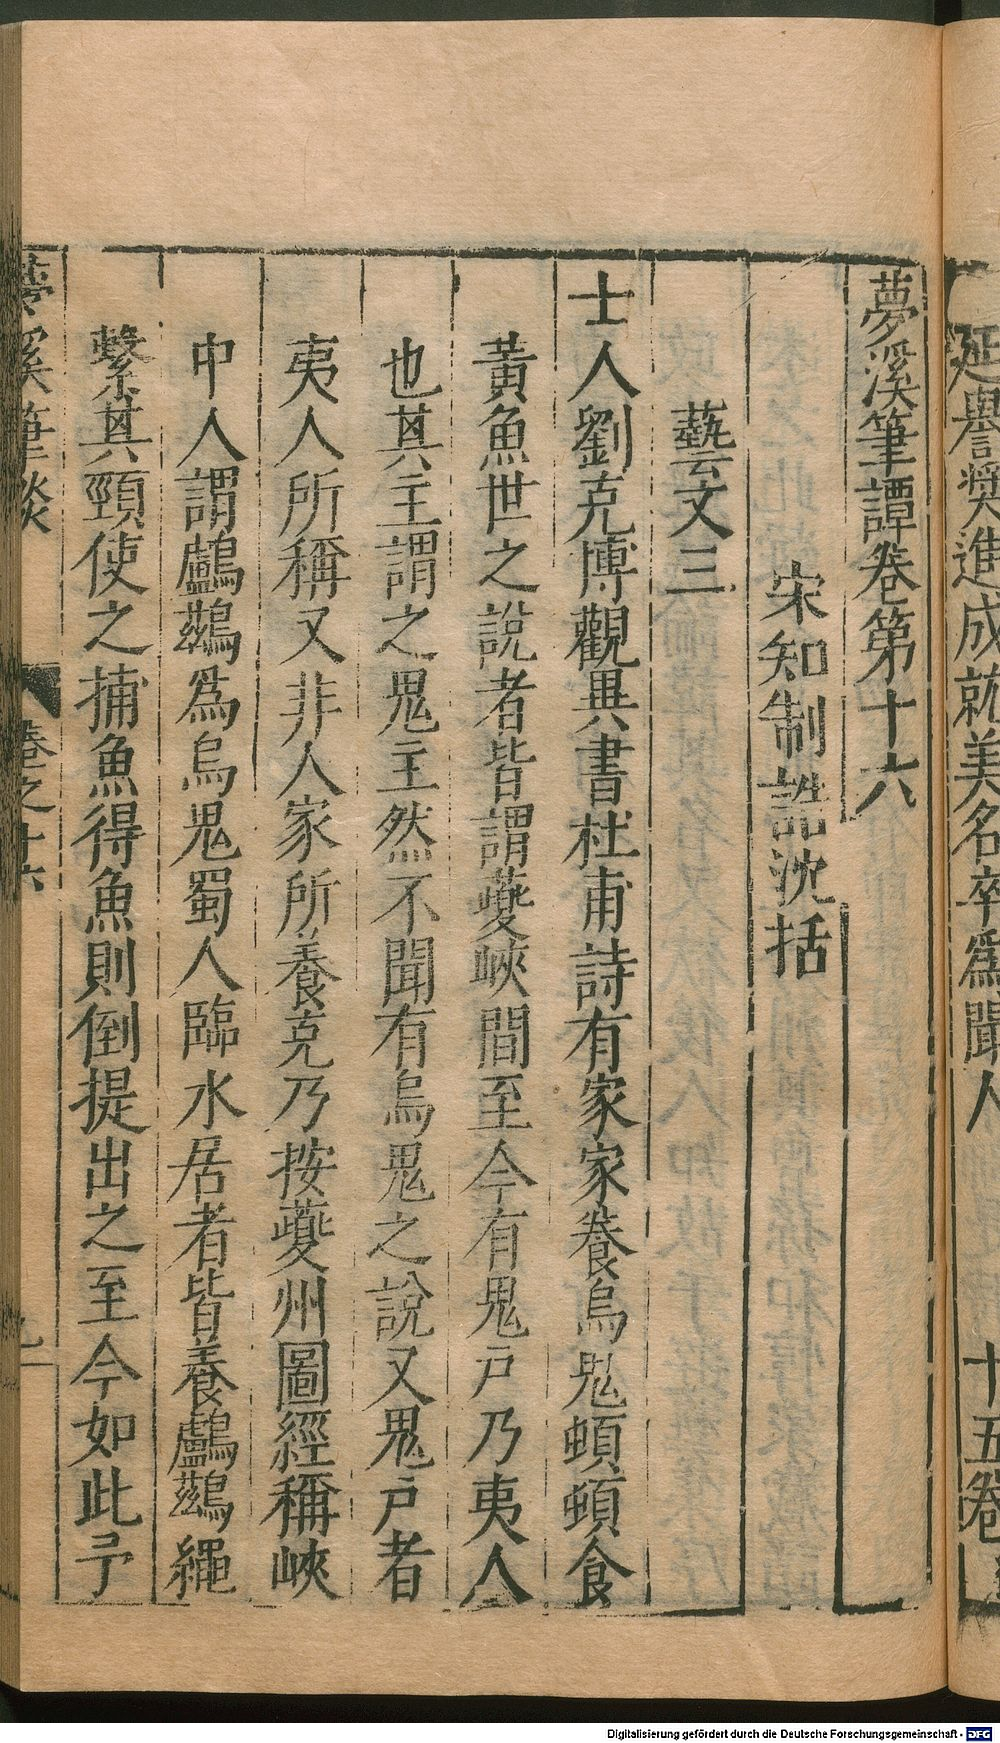 延譽奬進成就美名卒爲聞人
十五卷
夢溪筆譚卷第十六
宋知制誥沈括
藝文三
士人劉克博觀異書杜甫詩有家家養烏鬼頓頓食
黃魚世之說者皆謂夔峽間至今有鬼戸乃夷人
也其主謂之鬼主然不聞有烏鬼之說又鬼戸者
夷人所稱又非人家所養克乃按夔州圖經稱峽
中人謂鸕鷀爲烏鬼蜀人臨水居者皆養鸕鷀繩
繫其頸使之捕魚得魚則倒提出之至今如此予
夢溪筆談
卷之十六
Digitalisierung gefördert durch die Deutsche Forschungsgemeinschaft - DFG